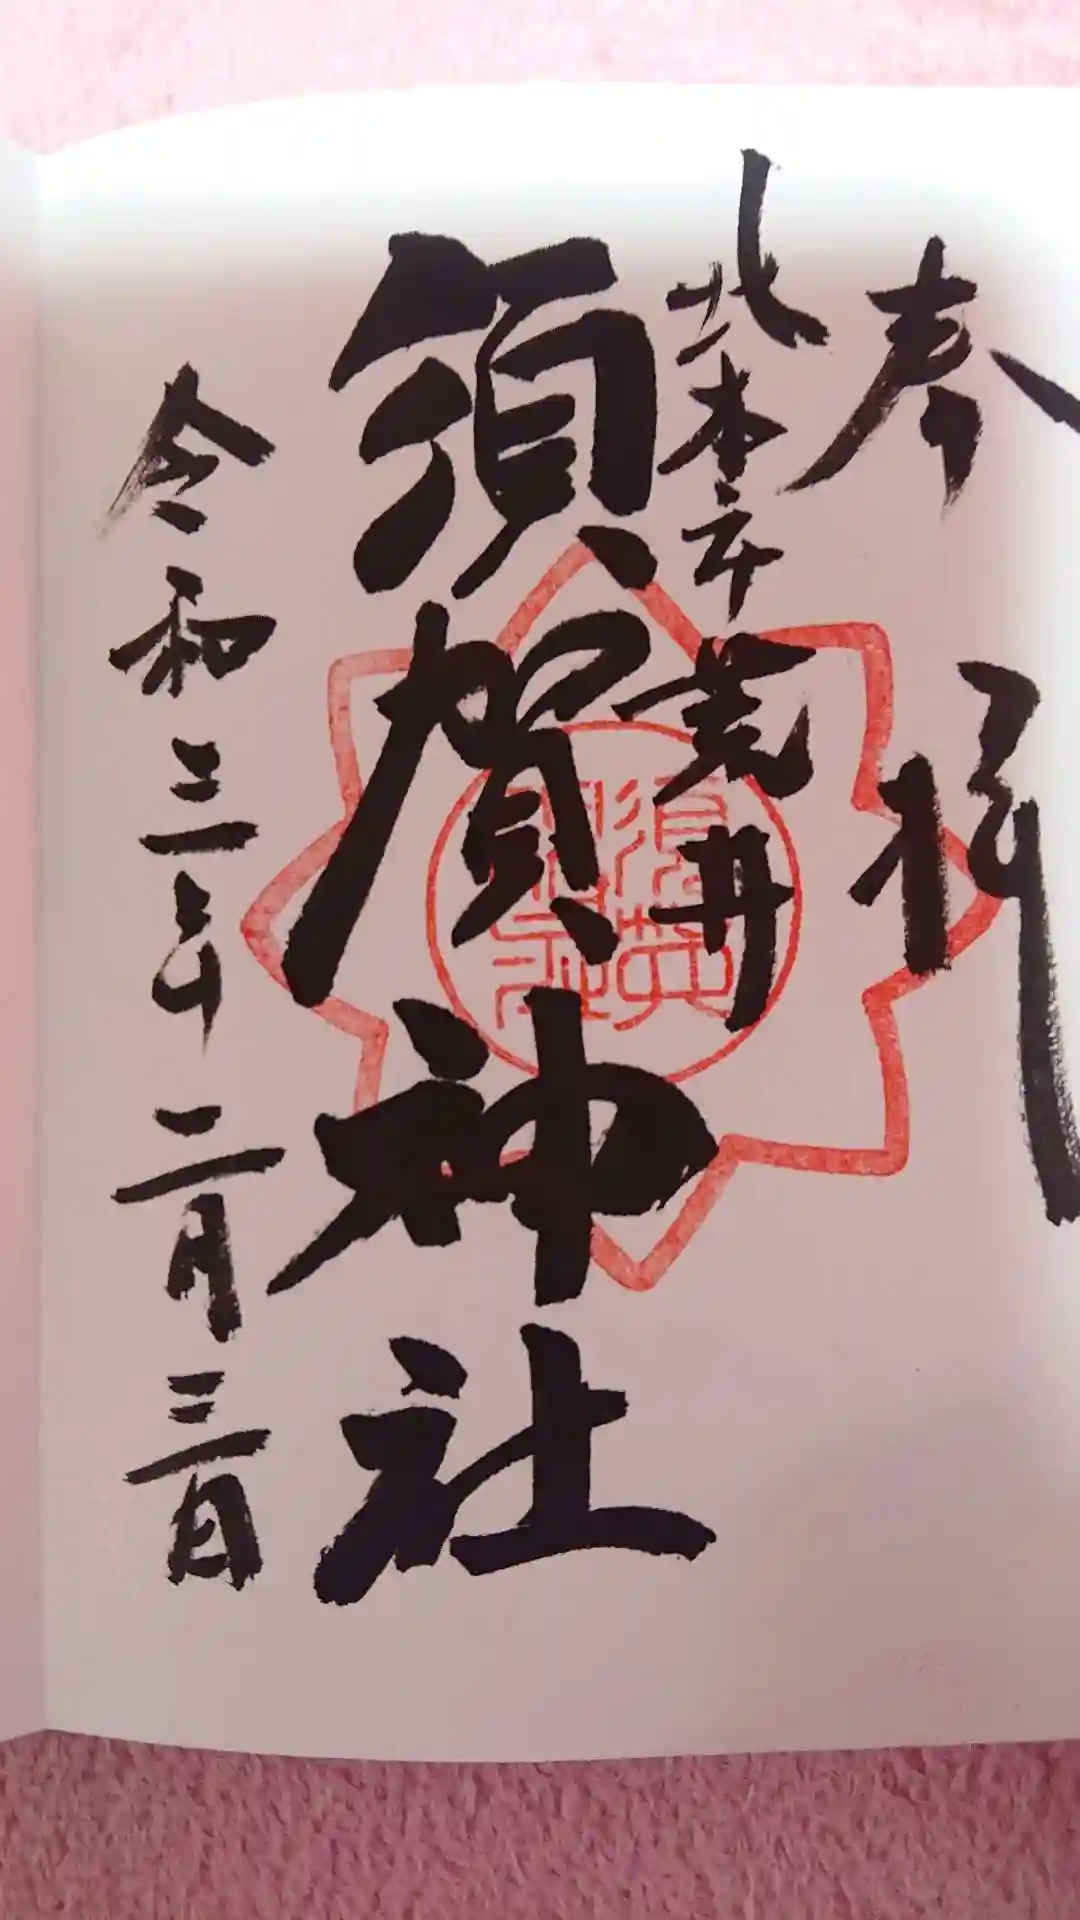 奉拝
北本市荒井
須賀神社
令和三年二月三日
須賀神社